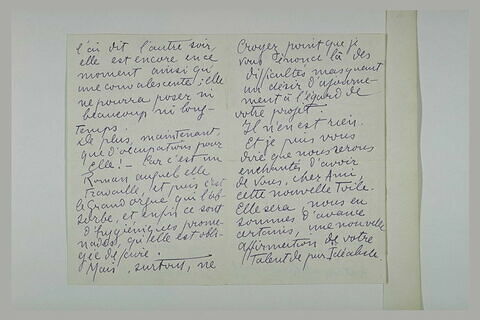 l'ai dit l'autre soir,
elle est encore en ce
moment ainsi qu'
une convalescente ; elle
ne pourra poser ni
beaucoup ni long-
temps.
De plus, maintenant,
que d'occupations pour
Elle ! — Car c'est un
Roman auquel elle
travaille, et puis c'est
le Grand orgue qui l'ab-
sorbe, et enfin ce sont
d'hygiéniques prome-
nades, qu'elle est obli-
gée de faire.
Mais, surtout, ne
Croyez point que je
vous énonce là des
difficultés masquant
un désir d'ajourne-
ment à l'égard de
votre projet
Il n'en est rien.
Et je puis vous
dire que nous serons
enchantés d'avoir
de vous, cher Ami,
cette nouvelle toile.
Elle sera, nous en
sommes d'avance
certains, une nouvelle
affirmation de votre
talent de pur Idéaliste.